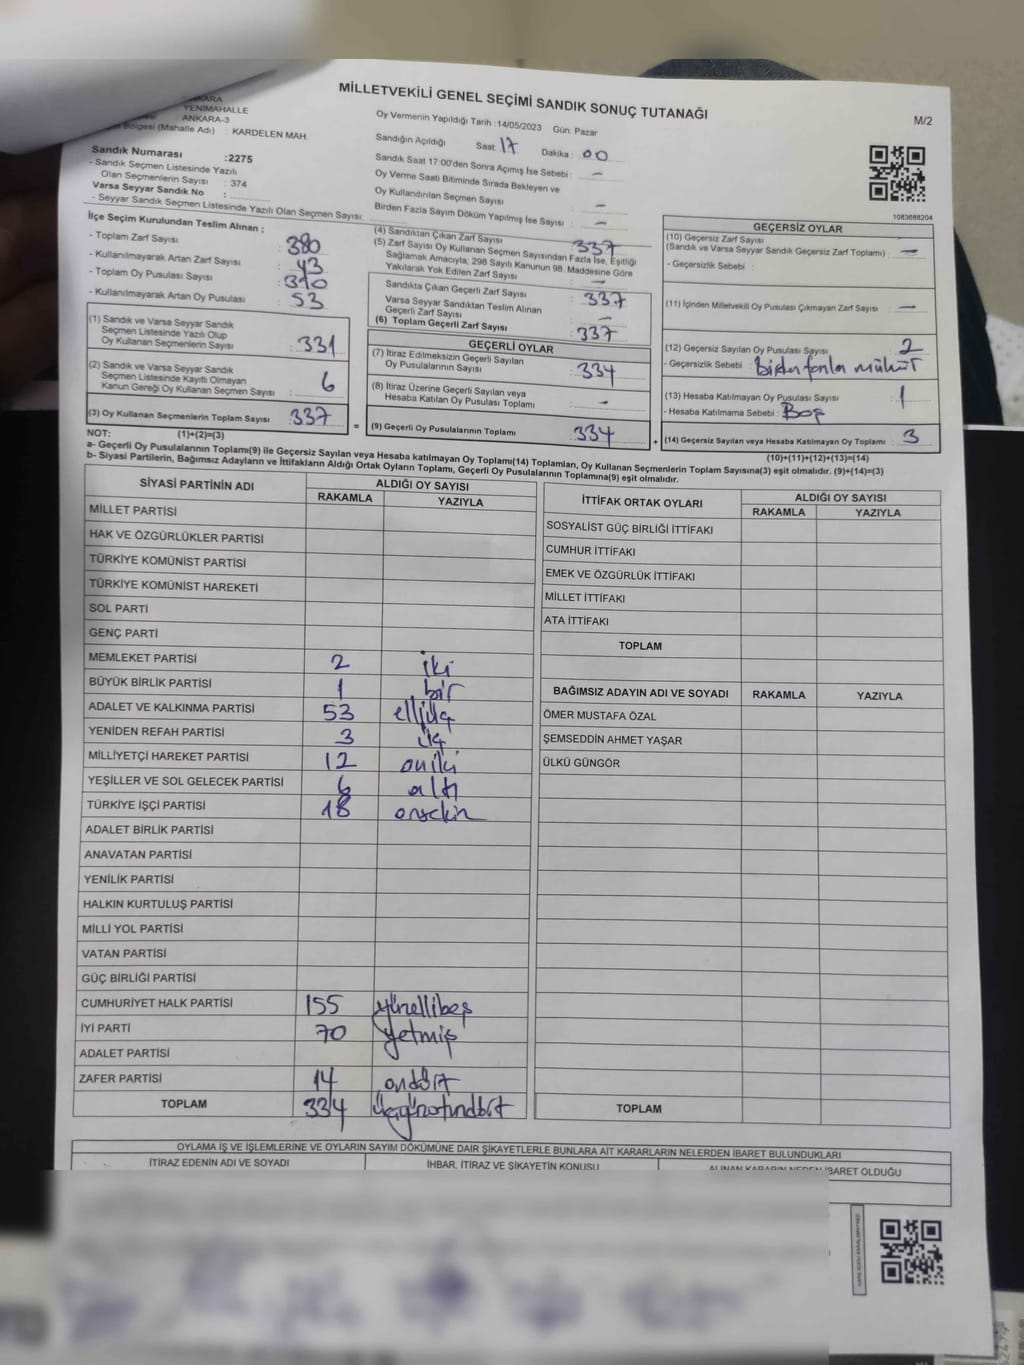 MİLLETVEKİLİ GENEL SEÇİMİ SANDIK SONUÇ TUTANAĞI
M/2
YENİMAHALLE
ANKARA-3
Bölgesi (Mahalle Adı) : KARDELEN MAH.
Sandık Numarası :2275
- Sandık Seçmen Listesinde Yazılı
Olan Seçmenlerin Sayısı : 374
Varsa Seyyar Sandık No :
- Seyyar Sandık Seçmen Listesinde Yazılı Olan Seçmen Sayısı:
Oy Vermenin Yapıldığı Tarih :14/05/2023 Gün: Pazar
Sandığın Açıldığı Saat: 17 Dakika : 00
Sandık Saat 17:00'den Sonra Açımış İse Sebebi : -
Oy Verme Saati Bitiminde Sırada Bekleyen ve
Oy Kullandırılan Seçmen Sayısı : -
Birden Fazla Sayım Döküm Yapılmış İse Sayısı : -
1083688204
İlçe Seçim Kurulundan Teslim Alınan ;
- Toplam Zarf Sayısı : 380
- Kullanılmayarak Artan Zarf Sayısı : 43
- Toplam Oy Pusulası Sayısı : 390
- Kullanılmayarak Artan Oy Pusulası : 53
(1) Sandık ve Varsa Seyyar Sandık
Seçmen Listesinde Yazılı Olup
Oy Kullanan Seçmenlerin Sayısı : 331
(2) Sandık ve Varsa Seyyar Sandık
Seçmen Listesinde Kayıtlı Olmayan
Kanun Gereği Oy Kullanan Seçmen Sayısı : 6
(3) Oy Kullanan Seçmenlerin Toplam Sayısı : 337
(4) Sandıktan Çıkan Zarf Sayısı : 337
(5) Zarf Sayısı Oy Kullanan Seçmen Sayısından Fazla İse, Eşitliği
Sağlamak Amacıyla, 298 Sayılı Kanunun 98. Maddesine Göre
Yakılarak Yok Edilen Zarf Sayısı : -
Sandıkta Çıkan Geçerli Zarf Sayısı : 337
Varsa Seyyar Sandıktan Teslim Alınan
Geçerli Zarf Sayısı : -
(6) Toplam Geçerli Zarf Sayısı : 337
GEÇERLİ OYLAR
(7) İtiraz Edilmeksizin Geçerli Sayılan
Oy Pusulalarının Sayısı : 334
(8) İtiraz Üzerine Geçerli Sayılan veya
Hesaba Katılan Oy Pusulası Toplamı : -
= (9) Geçerli Oy Pusulalarının Toplamı : 334
GEÇERSİZ OYLAR
(10) Geçersiz Zarf Sayısı
(Sandık ve Varsa Seyyar Sandık Geçersiz Zarf Toplamı) : -
- Geçersizlik Sebebi :
(11) İçinden Milletvekili Oy Pusulası Çıkmayan Zarf Sayısı : -
(12) Geçersiz Sayılan Oy Pusulası Sayısı : 2
- Geçersizlik Sebebi : birden fazla mühür
(13) Hesaba Katılmayan Oy Pusulası Sayısı : 1
- Hesaba Katılmama Sebebi : Boş
+ (14) Geçersiz Sayılan veya Hesaba Katılmayan Oy Toplamı : 3
NOT: (1)+(2)=(3)
(10)+(11)+(12)+(13)=(14)
a- Geçerli Oy Pusulaları Toplamı(9) ile Geçersiz Sayılan veya Hesaba katılmayan Oy Toplamı(14) Toplamları, Oy Kullanan Seçmenlerin Toplam Sayısına(3) eşit olmalıdır. (9)+(14)=(3)
b- Siyasi Partilerin, Bağımsız Adayların ve İttifakların Aldığı Ortak Oyların Toplamı, Geçerli Oy Pusulalarının Toplamına(9) eşit olmalıdır.
SİYASİ PARTİNİN ADI ALDIĞI OY SAYISI
RAKAMLA YAZIYLA
MİLLET PARTİSİ
HAK VE ÖZGÜRLÜKLER PARTİSİ
TÜRKİYE KOMÜNİST PARTİSİ
TÜRKİYE KOMÜNİST HAREKETİ
SOL PARTİ
GENÇ PARTİ
MEMLEKET PARTİSİ 2 iki
BÜYÜK BİRLİK PARTİSİ 1 bir
ADALET VE KALKINMA PARTİSİ 53 elliüç
YENİDEN REFAH PARTİSİ 3 üç
MİLLİYETÇİ HAREKET PARTİSİ 12 oniki
YEŞİLLER VE SOL GELECEK PARTİSİ 6 altı
TÜRKİYE İŞÇİ PARTİSİ 18 onsekiz
ADALET BİRLİK PARTİSİ
ANAVATAN PARTİSİ
YENİLİK PARTİSİ
HALKIN KURTULUŞ PARTİSİ
MİLLİ YOL PARTİSİ
VATAN PARTİSİ
GÜÇ BİRLİĞİ PARTİSİ
CUMHURİYET HALK PARTİSİ 155 yüzellibeş
İYİ PARTİ 70 yetmiş
ADALET PARTİSİ
ZAFER PARTİSİ 14 ondört
TOPLAM 334 üçyüzotuzdört
İTTİFAK ORTAK OYLARI ALDIĞI OY SAYISI
RAKAMLA YAZIYLA
SOSYALİST GÜÇ BİRLİĞİ İTTİFAKI
CUMHUR İTTİFAKI
EMEK VE ÖZGÜRLÜK İTTİFAKI
MİLLET İTTİFAKI
ATA İTTİFAKI
TOPLAM
BAĞIMSIZ ADAYIN ADI VE SOYADI RAKAMLA YAZIYLA
ÖMER MUSTAFA ÖZAL
ŞEMSEDDİN AHMET YAŞAR
ÜLKÜ GÜNGÖR
TOPLAM
OYLAMA İŞ VE İŞLEMLERİNE VE OYLARIN SAYIM DÖKÜMÜNE DAİR ŞİKAYETLERLE BUNLARA AİT KARARLARIN NELERDEN İBARET BULUNDUKLARI
İTİRAZ EDENİN ADI VE SOYADI İHBAR, İTİRAZ VE ŞİKAYETİN KONUSU ALINAN KARARIN NEDEN İBARET OLDUĞU